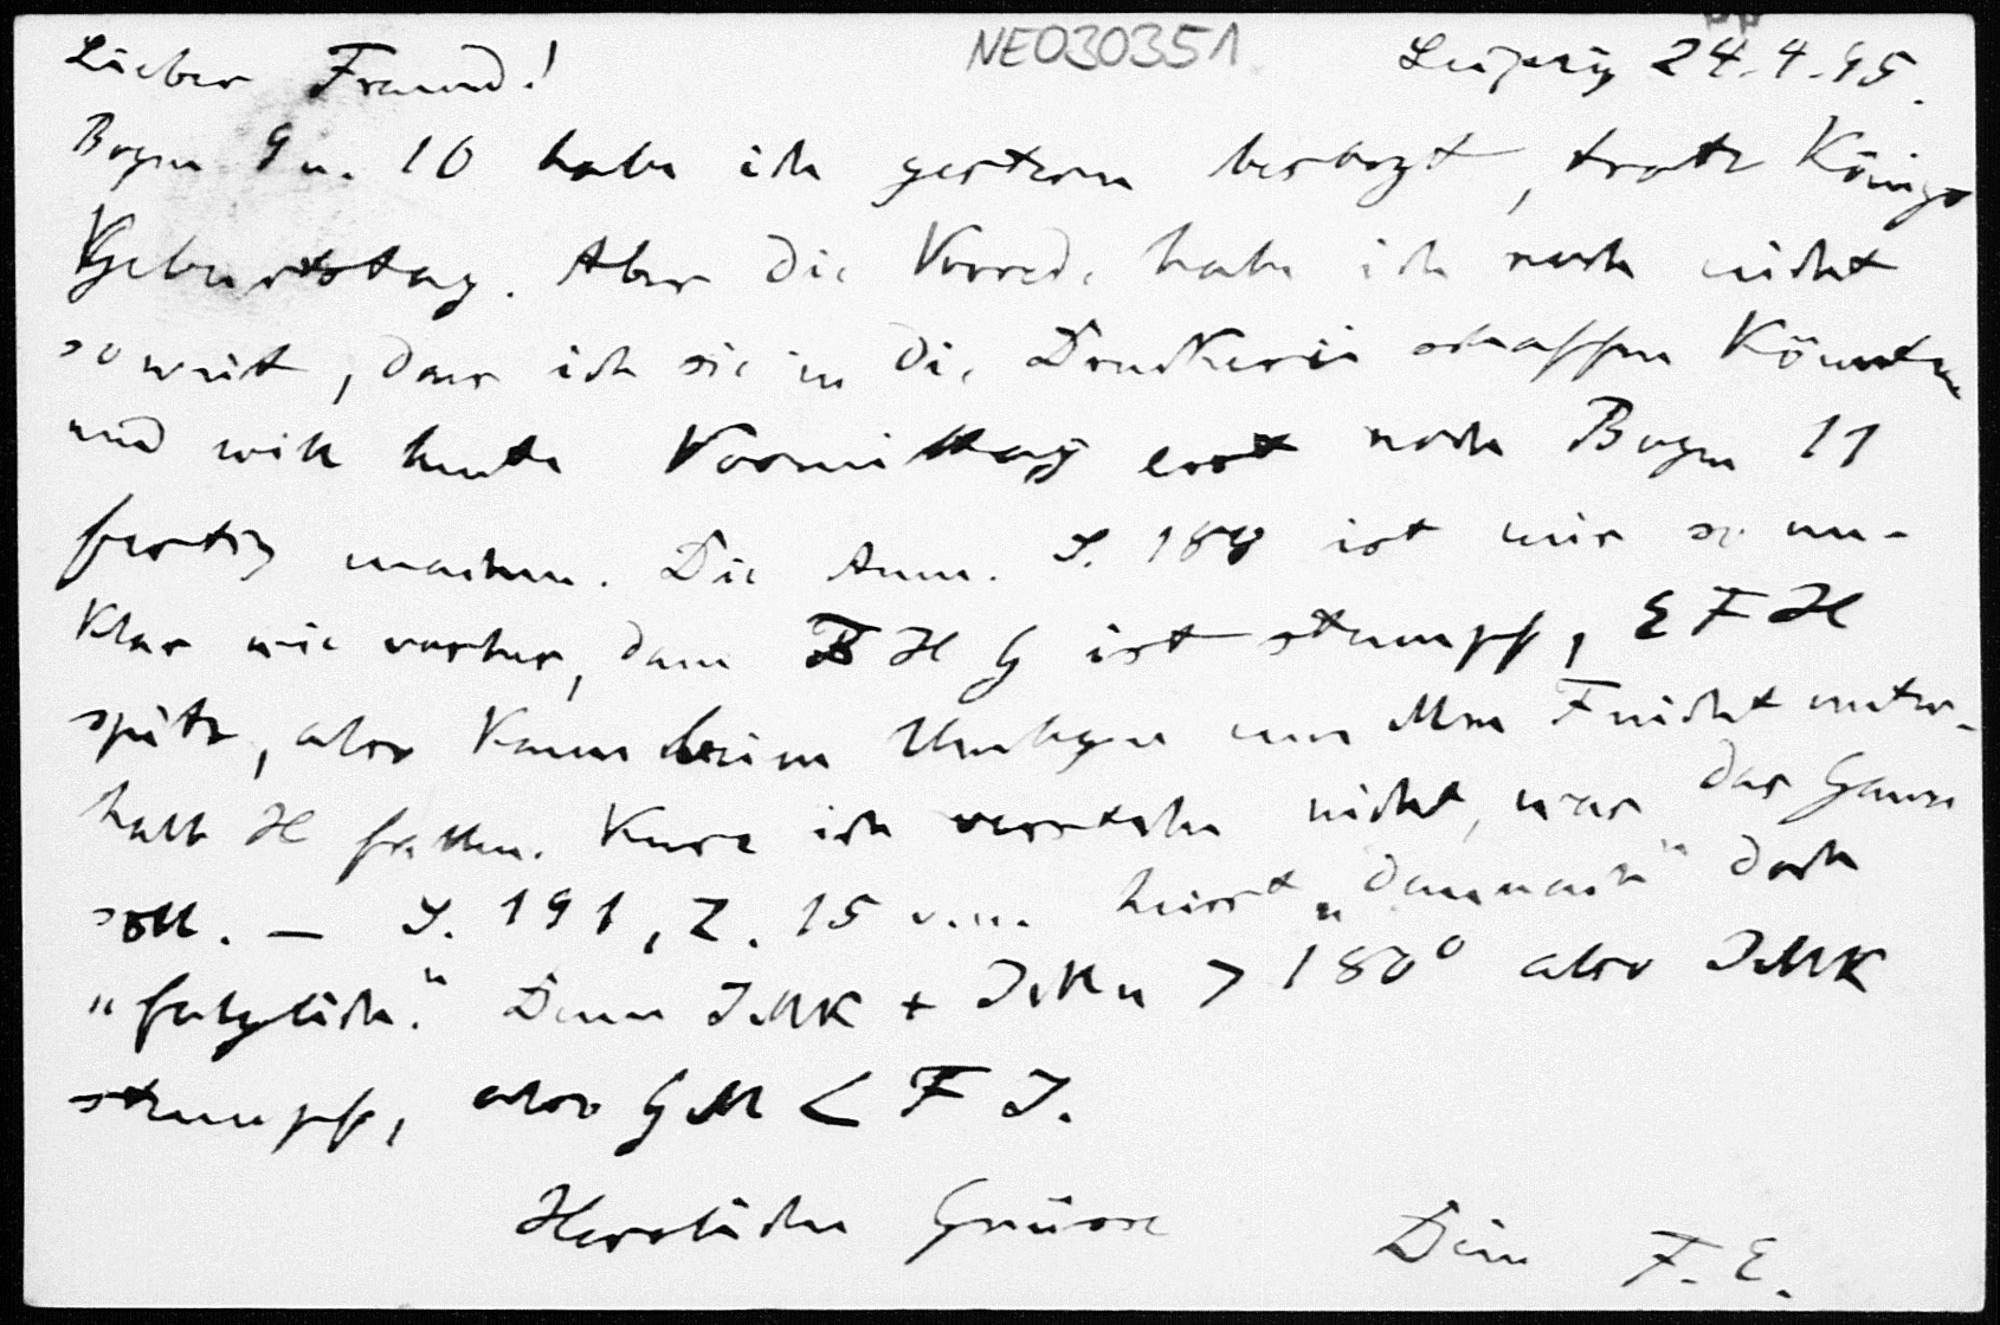 NE030351
Lieber Freund! Leipzig 24.4.95.
Bogen 9 u. 10 habe ich gestern besorgt, trotz Königs
Geburtstag. Aber die Vorrede habe ich noch nicht
so weit, dass ich sie in die Druckerei schaffen könnte
und will heute Vormittag erst noch Bogen 11
fertig machen. Die Anm. S. 188 ist mir so un-
klar wie vorher, denn BHG ist stumpf, EFH
spitz, also kann beim Umlegen um Mm F nicht unter-
halb H fallen. Kurz ich verstehe nicht, was das Ganze
soll. — S. 191, Z. 15 v.u. heisst „demnach" doch
„folglich." Denn JMK + JMu > 180° also JMK
stumpf, also GM < FJ.
Herzliche Grüsse Dein F.E.